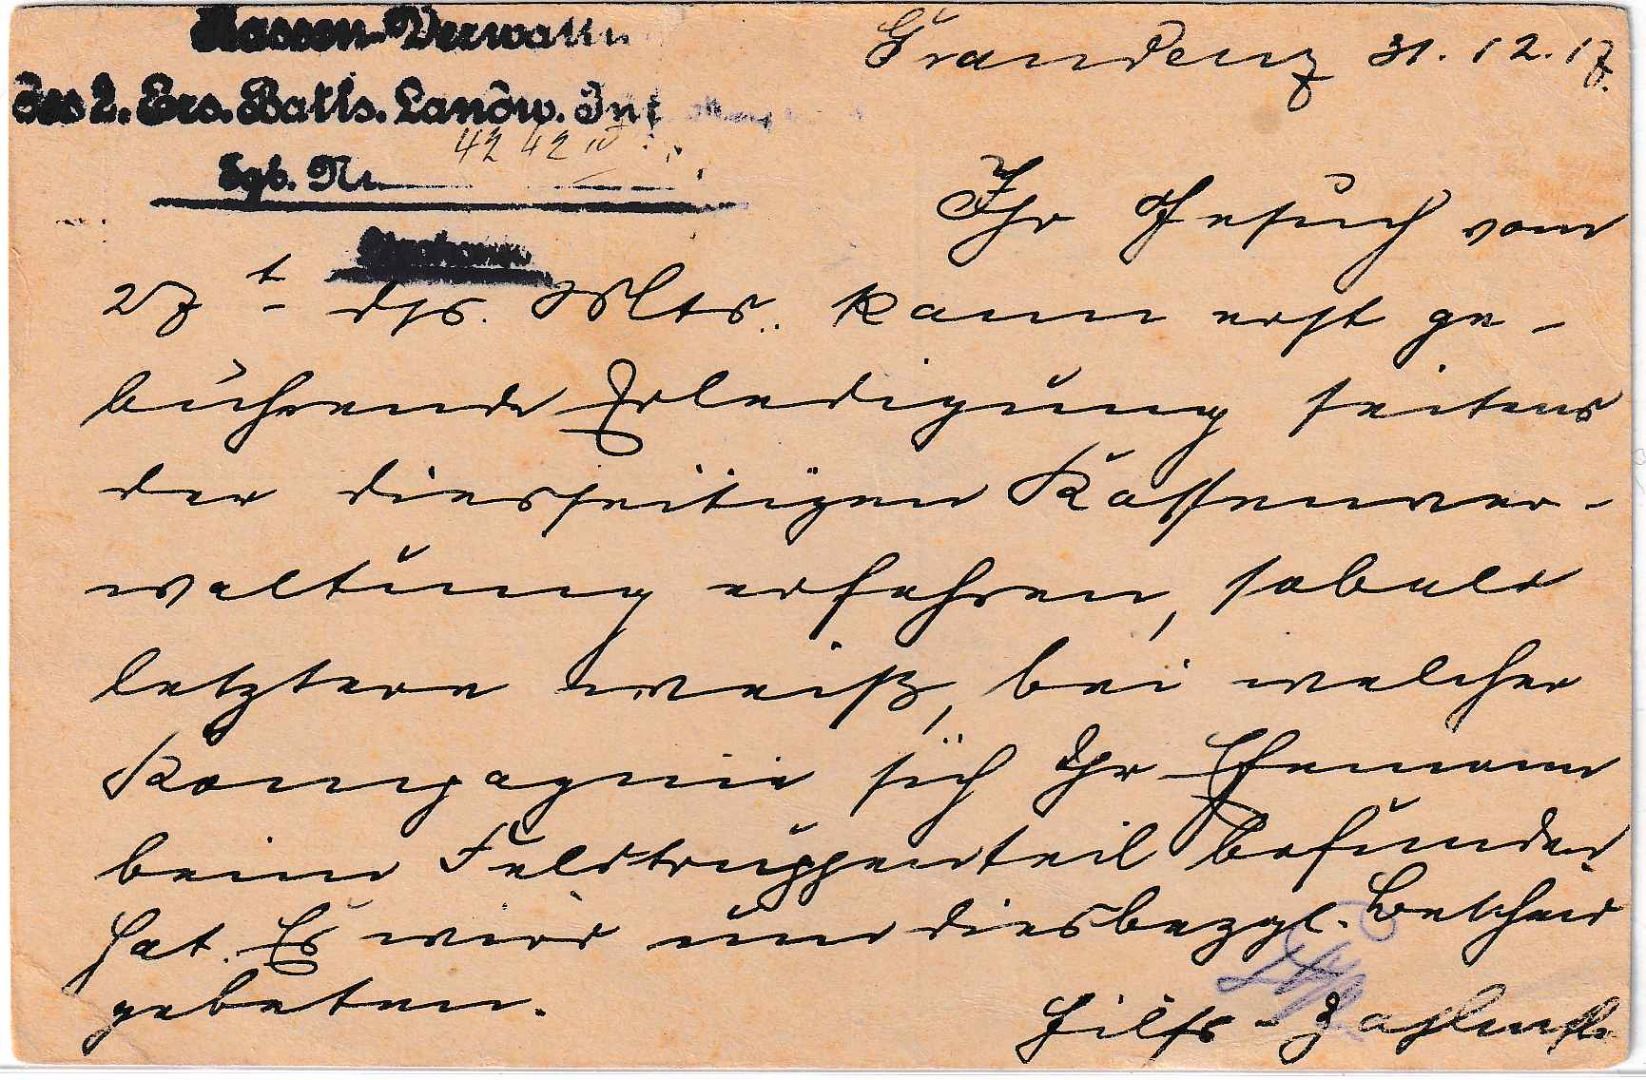 Kassen-Verwaltu
des 2. Ers. Batls. Landw. Inf
Tgb. Nr. 4242 IV
Graudenz 31.12.17.
Ihr Gesuch vom
27t. dss. Mts. kann erst ge-
bührende Erledigung seitens
der diesseitigen Kassenver-
waltung erfahren, sobald
letztere weiß, bei welcher
Kompagnie sich Ihr Ehemann
beim Feldtruppenteil befunden
hat. Es wird um diesbezgl. Bescheid
gebeten.
Hilfs-Zahlmstr.